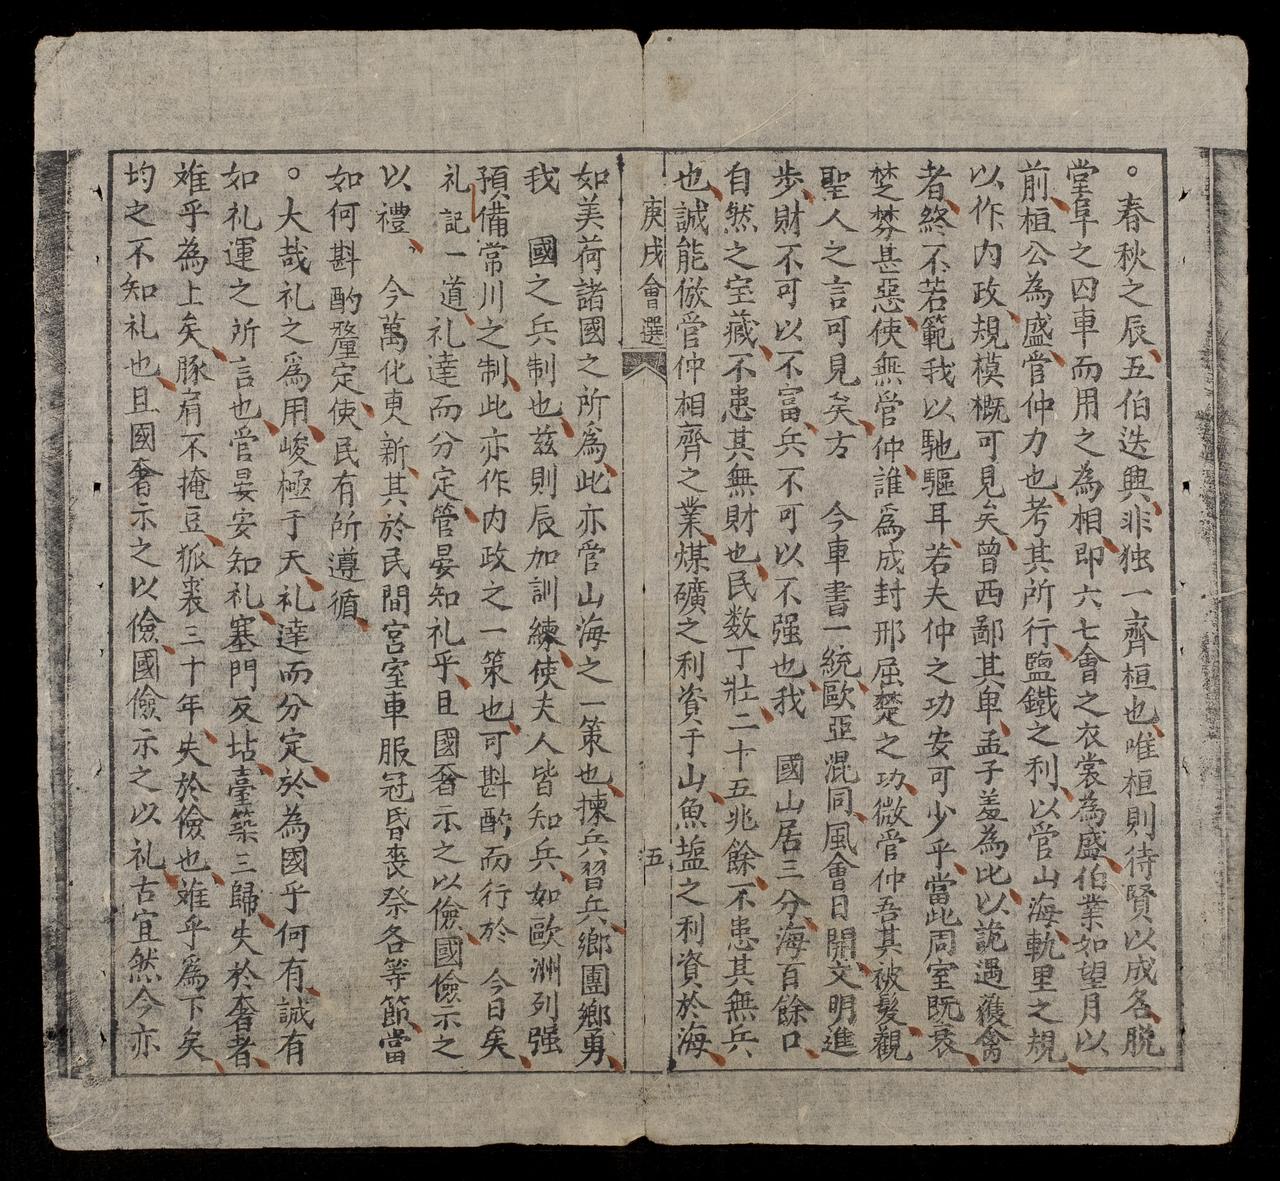 。春秋之辰五伯迭興非独一齊桓也唯桓則待賢以成名脱
堂阜之囚車而用之為相即六七會之衣裳為盛伯業如望月以
前桓公為盛管仲力也考其所行鹽鐵之利以管山海軌里之規
以作内政規模概可見矣曾西鄙其卑孟子羞為比以詭遇獲禽
者終不若範我以馳驅耳若夫仲之功安可少乎當此周室既衰
楚棼甚惡使無管仲誰為成封邢屈楚之功微管仲吾其被髮觀
聖人之言可見矣方 今車書一統歐亞混同風會日開文明進
步財不可以不富兵不可以不强也我 國山居三分海百餘口
自然之宝藏不患其無財也民数丁壯二十五兆餘不患其無兵
也誠能倣管仲相齊之業煤礦之利資于山魚塩之利資於海
庚戌會選 五
如美荷諸國之所為此亦管山海之一策也揀兵習兵鄉團鄉勇
我 國之兵制也兹則辰加訓練使夫人皆知兵如歐洲列强
預備常川之制此亦作内政之一策也可斟酌而行於 今日矣
礼記一道礼達而分定管晏知礼乎且國奢示之以儉國儉示之
以禮 今萬化更新其於民間宮室車服冠昏喪祭各等節當
如何斟酌釐定使民有所遵循
。大哉礼之為用峻極于天礼達而分定於為國乎何有誠有
如礼運之所言也管晏安知礼塞門反坫臺築三歸失於奢者
难乎為上矣豚肩不掩豆狐裘三十年失於儉也难乎為下矣
均之不知礼也且國奢示之以儉國儉示之以礼古宜然今亦